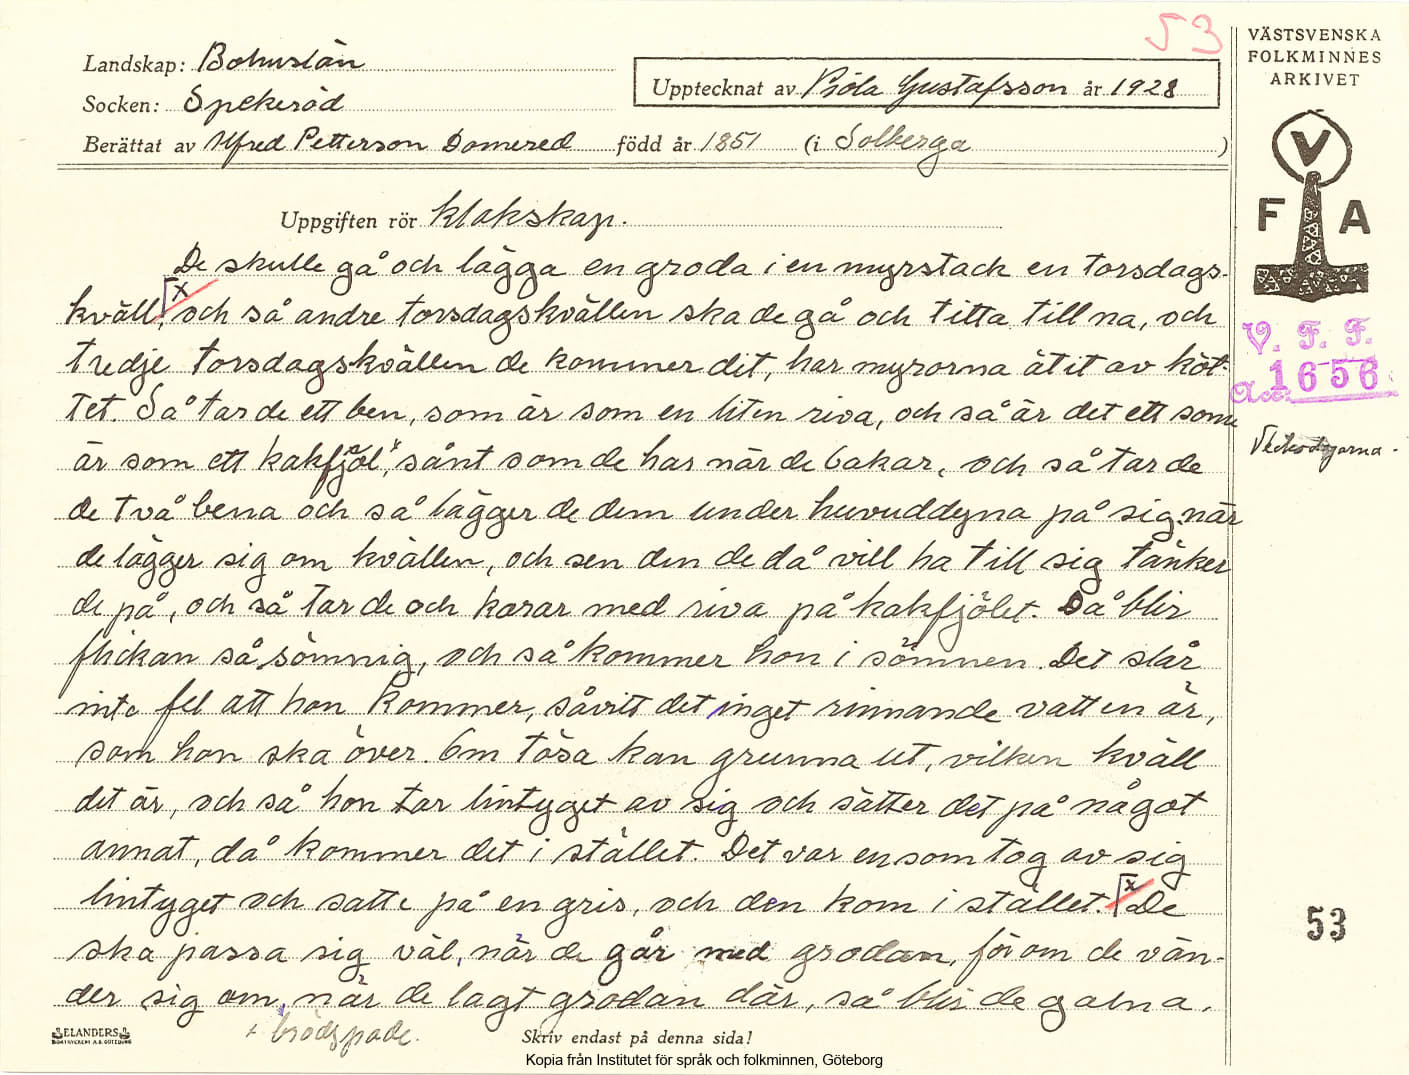 53
VÄSTSVENSKA
FOLKMINNES
ARKIVET
Landskap: Bohuslän
Socken: Spekeröd
Upptecknat av Nióla Gustafsson år 1928
Berättat av Alfred Petterson Domered född år 1851 (i Solberga )
V
F A
Uppgiften rör klokskap.
De skulle gå och lägga en groda i en myrstack en torsdags-
kväll, och så andre torsdagskvällen ska de gå och titta till na, och
tredje torsdagskvällen de kommer dit, har myrorna ätit av köt-
tet. Så tar de ett ben, som är som en liten riva, och så är det ett som
är som ett kakfjöl x, sånt som de har när de bakar, och så tar de
de två bena och så lägger de dem under huvuddyna på sig när
de lägger sig om kvällen, och sen den de då vill ha till sig tänker
de på, och så tar de och karar med riva på kakfjölet. Då blir
flickan så sömnig, och så kommer hon i sömnen. Det slår
inte fel att hon kommer, såvitt det inget rinnande vatten är,
som hon ska över. Om tösa kan grunna ut, vilken kväll
det är, och så hon tar lintyget av sig och sätter det på något
annat, då kommer det i stället. Det var en som tog av sig
lintyget och satte på en gris, och den kom i stället. x De
ska passa sig väl, när de går med grodan, för om de vän-
der sig om, när de lagt grodan där, så blir de galna.
V. F. F.
Acc. 1656
Veckodagarna.
53
ELANDERS
BOKTRYCKERI A.B. GÖTEBORG
+ brödspade.
Skriv endast på denna sida!
Kopia från Institutet för språk och folkminnen, Göteborg